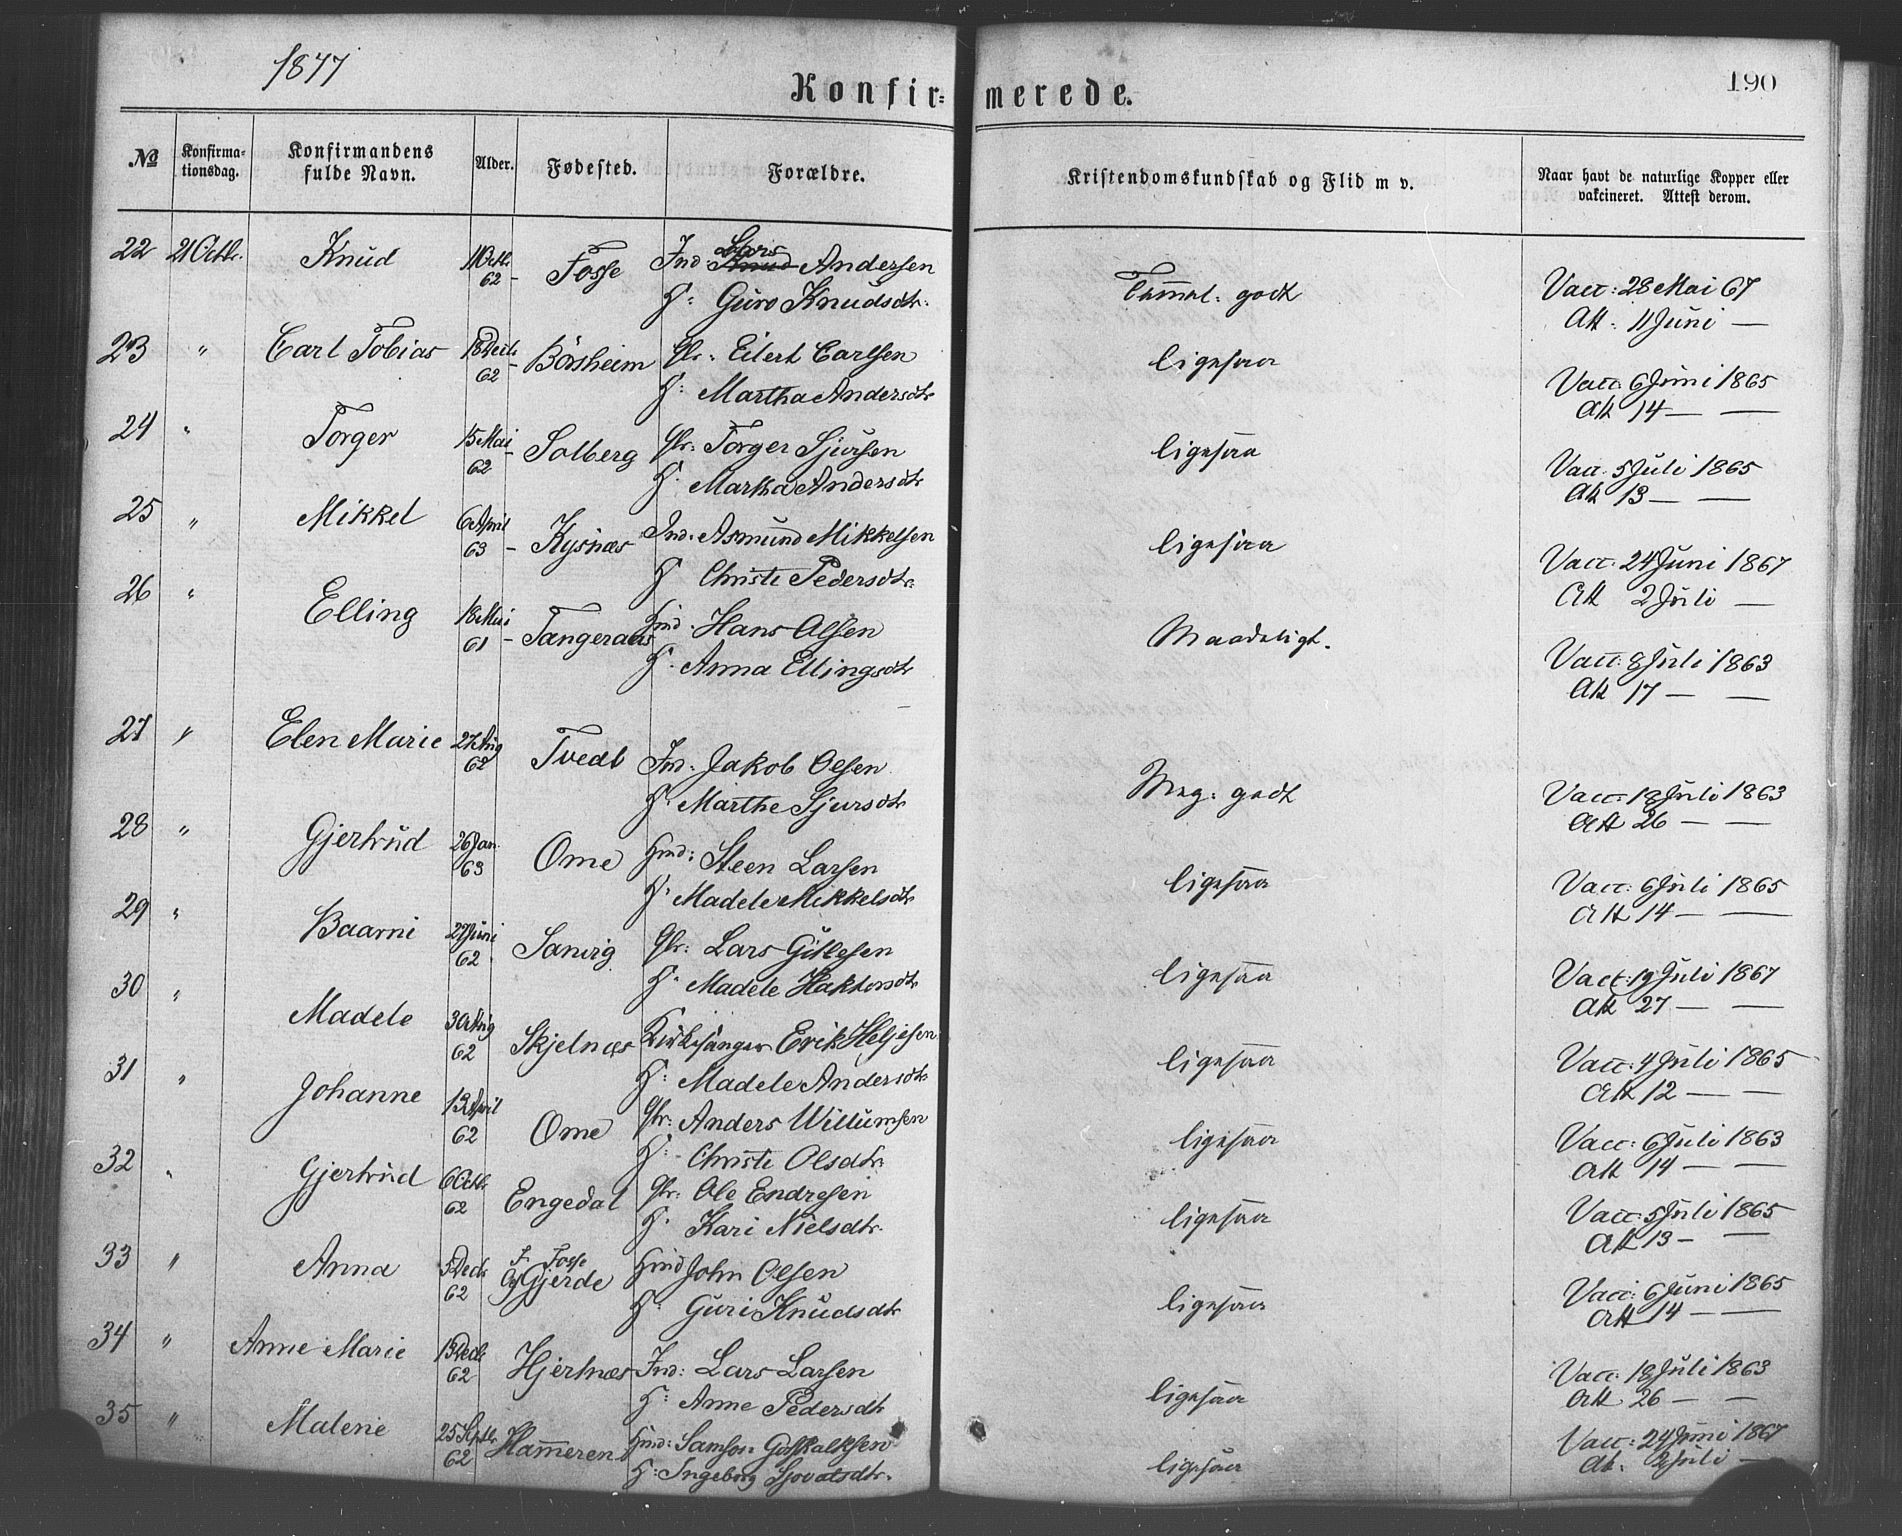 1877
Konfir- merede.
190
No
Konfirma-
tionsdag.
Konfirmandens
fulde Navn.
Alder.
Fødested.
Forældre.
Kristendomskundskab og Flid m v.
Naar havt de naturlige Kopper eller
vakcineret. Attest derom.
22 21 Octb. Knud 11 Octb. 62 - Fosse Ind. Lars Knud Andersen
H: Guro Knudsdtr. Tammel: godt Vacc: 28 Mai 67
Att. 11 Juni —
23 " Carl Tobias 18 Decb 62 - Börsheim Gbr. Eilert Carlsen
H: Martha Andersdtr ligesaa Vacc: 6 Juni 1865
Att 14 — —
24 " Torger 15 Mai 62 - Solberg Gbr: Torger Sjursen
H. Martha Andersdtr ligesaa Vacc. 5 Juli 1865
Att 13 — —
25 " Mikkel 6 April 63 - Kysnæs Ind. Asmund Mikkelsen
H Christi Pedersdtr. ligesaa Vacc: 24 Juni 1867
Att 2 Juli —
26 " Elling 18 Mai 61 - Tangeraas Hmd. Hans Olsen
H. Anna Ellingsdtr Maadeligt. Vacc: 8 Juli 1863
Att 17 — —
27 " Elen Marie 27 Aug 62 Tvedt Ind. Jakob Olsen
H. Marthe Sjursdtr Meg: godt Vacc: 18 Juli 1863
Att 26 — —
28 " Gjertrud 26 Jan. 63 Ome Hmd: Steen Larsen
H. Madele Mikkelsdtr ligesaa Vacc: 6 Juli 1865
Att 14 — —
29 " Baarni 27 Juni 62 Sanvig Gbr: Lars Gitlesen
H. Madele Haktorsdtr ligesaa Vacc: 19 Juli 1867
Att 27 — —
30 " Madele 30 Aug 62 Skjelnæs Kirkesanger Erik Heljesen
H: Madele Andersdtr ligesaa Vacc: 4 Juli 1865
Att 12 — —
31 " Johanne 13 April 62 Ome Gbr: Anders Willumsen
H: Christi Olsdtr. ligesaa Vacc: 6 Juli 1863
Att 14 — —
32 " Gjertrud 6 Octb. 62 Engedal Gbr: Ole Endresen
H. Kari Nielsdtr. ligesaa Vacc: 5 Juli 1865
Att 13 — —
33 " Anna 5 Decb 62 F. Fosse
Og Gjerde Hmd John Olsen
H: Guri Knudsdtr ligesaa Vacc: 6 Juni 1865
Att 14 — —
34 " Anne Marie 13 Decb 62 Hjertnæs Ind: Lars Larsen
H: Anne Pedersdtr ligesaa Vacc: 18 Juli 1863
Att 26 — —
35 " Malene 25 Septb. 62 Hammeren Hmd: Samson Gotskalksen
H: Ingeborg Sjovatsdtr. ligesaa Vacc: 24 Juni 1867
Att. 2 Juli —